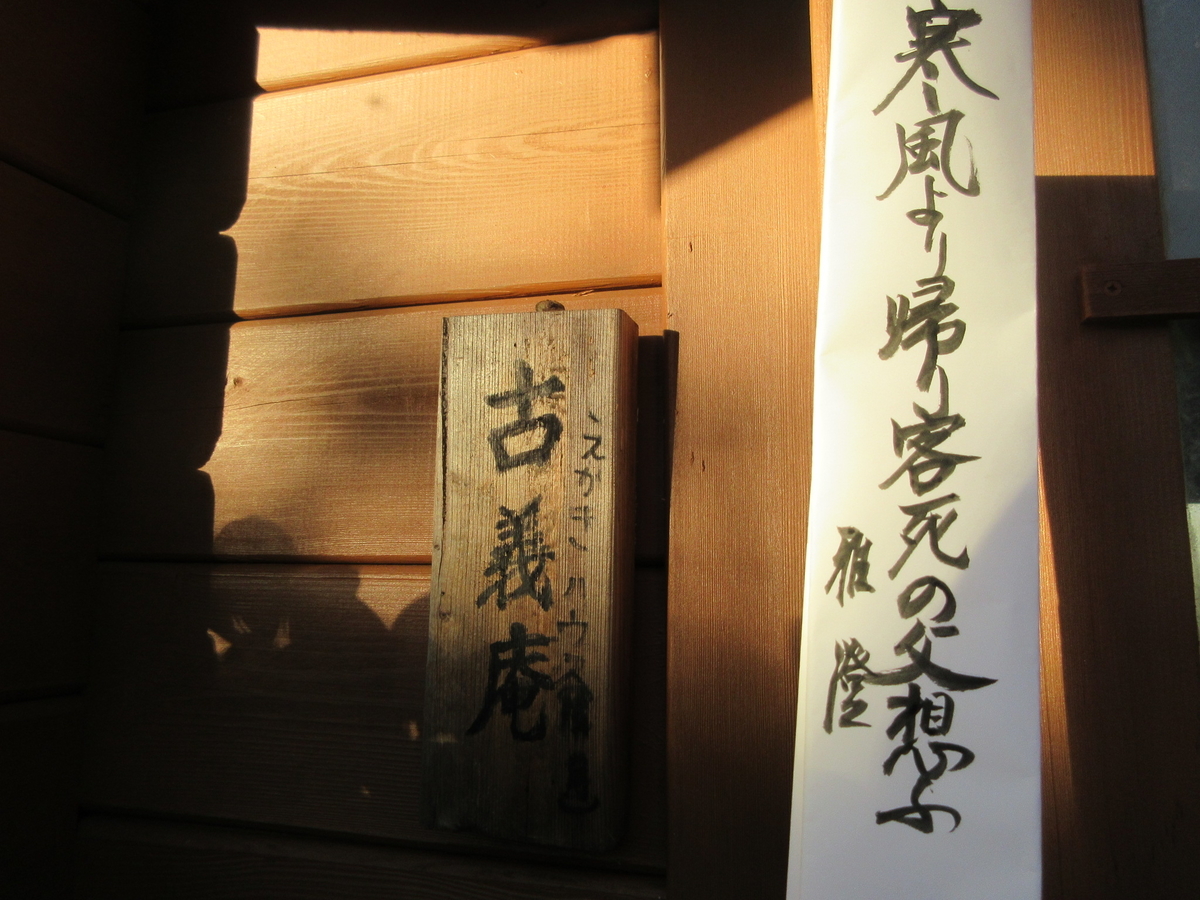 寒風より帰り客死の父想ふ
雅澄
えがき ハウス
古義庵